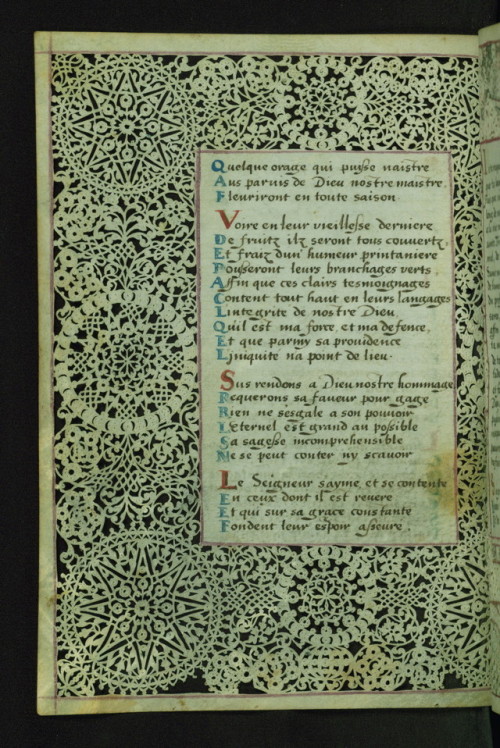 Quelque orage qui puysse naistre
Aus paruis de Dieu nostre maistre.
Fleuriront en toute saison.
Voire en leur vieillesse derniere
De fruitz ilz seront tous couvertz,
Et fraiz d'un' humeur printaniere
Pousseront leurs branchages verts
Affin que ces clairs tesmoignages
Content tout haut en leurs langages
L'integrite de nostre Dieu.
Quil est ma force, et ma defence,
Et que parmy sa prouidence
L'iniquite n'a point de lieu.
Sus rendons a Dieu nostre hommage
Requerons sa faveur pour gage
Rien ne sesgale a son pouuoir
L'eternel est grand au possible
Sa sagesse incomprehensible
Ne se peut conter ny scauoir
Le Seigneur s'ayme, et se contente
En ceux dont il est revere
Et qui sur sa grace constante
Fondent leur espoir asseure.